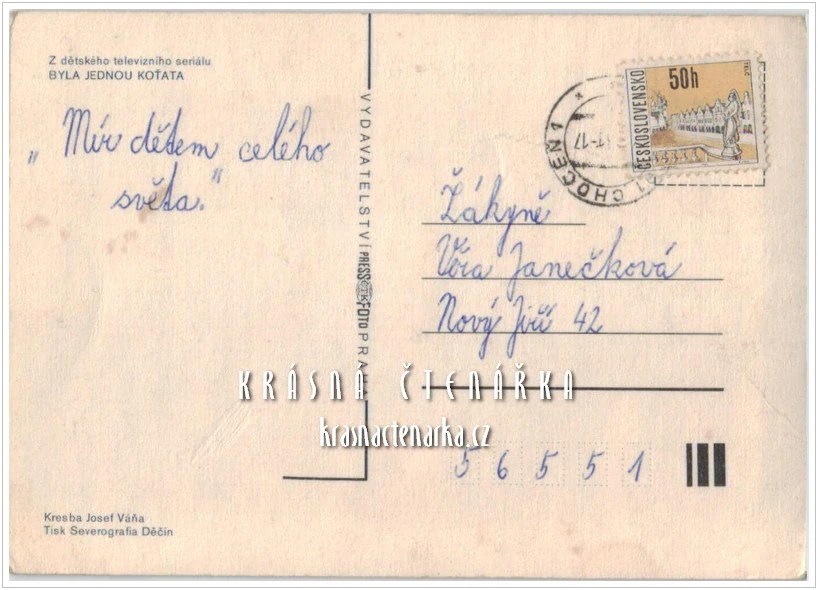 Z dětského televizního seriálu
BYLA JEDNOU KOŤATA
„Mír dětem celého
světa."
VYDAVATELSTVÍ PRESSFOTO PRAHA
ČTK
50h
ČESKOSLOVENSKO
TELČ
CHOCEŇ 1
17
Žákyně
Věra Janečková
Nový Jiří 42
KRÁSNÁ ČTENÁŘKA
krasnactenarka.cz
56551
Kresba Josef Váňa
Tisk Severografia Děčín